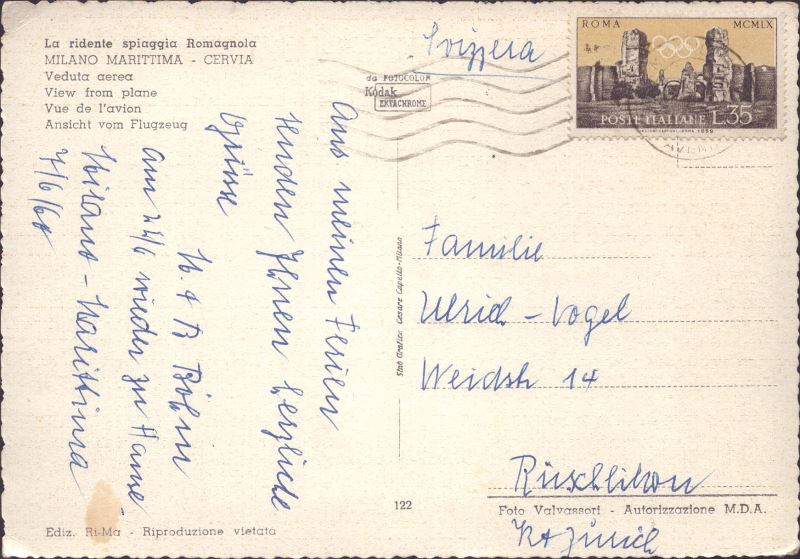 La ridente spiaggia Romagnola
MILANO MARITTIMA - CERVIA
Veduta aerea
View from plane
Vue de l'avion
Ansicht vom Flugzeug
Svizzera
da FOTOCOLOR
Kodak
EKTACHROME
ROMA MCMLX
POSTE ITALIANE L.35
Aus meinen Ferien
senden Ihnen herzliche
Grüsse
H. + B Böhni
am 22/6 wieder zu Hause
Milano - Marittima
7/6/60
Stab Grafico Cesare Capello-Milano
Familie
Ulrich - Vogel
Weidstr 14
Rüschlikon
Kt Zürich
122
Foto Valvassori - Autorizzazione M.D.A.
Ediz. Ri-Ma - Riproduzione vietata